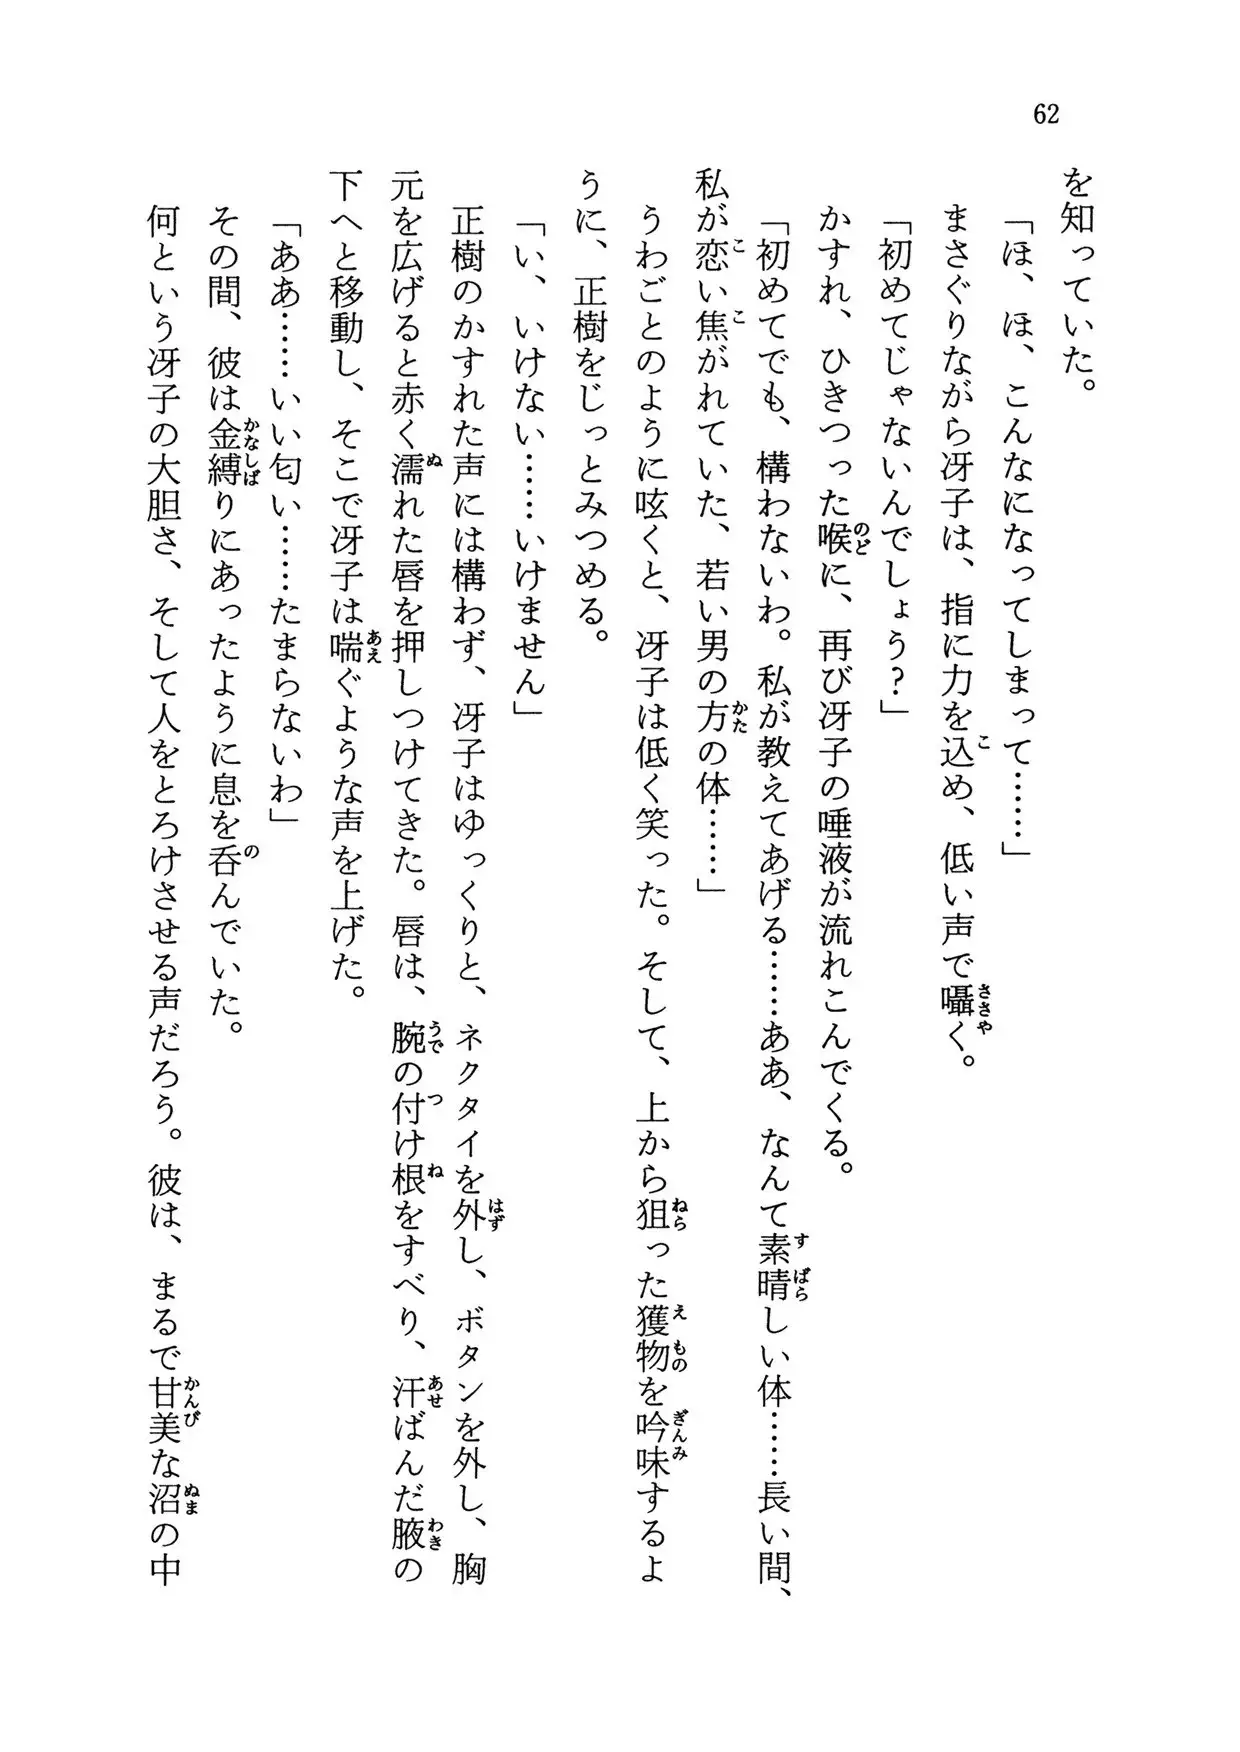 62
を知っていた。
「ほ、ほ、こんなになってしまって……」
まさぐりながら冴子は、指に力を込め、低い声で囁く。
「初めてじゃないんでしょう？」
かすれ、ひきつった喉に、再び冴子の唾液が流れこんでくる。
「初めてでも、構わないわ。私が教えてあげる……ああ、なんて素晴しい体……長い間、
私が恋い焦がれていた、若い男の方の体……」
うわごとのように呟くと、冴子は低く笑った。そして、上から狙った獲物を吟味するよ
うに、正樹をじっとみつめる。
「い、いけない……いけません」
正樹のかすれた声には構わず、冴子はゆっくりと、ネクタイを外し、ボタンを外し、胸
元を広げると赤く濡れた唇を押しつけてきた。唇は、腕の付け根をすべり、汗ばんだ腋の
下へと移動し、そこで冴子は喘ぐような声を上げた。
「ああ……いい匂い……たまらないわ」
その間、彼は金縛りにあったように息を呑んでいた。
何という冴子の大胆さ、そして人をとろけさせる声だろう。彼は、まるで甘美な沼の中